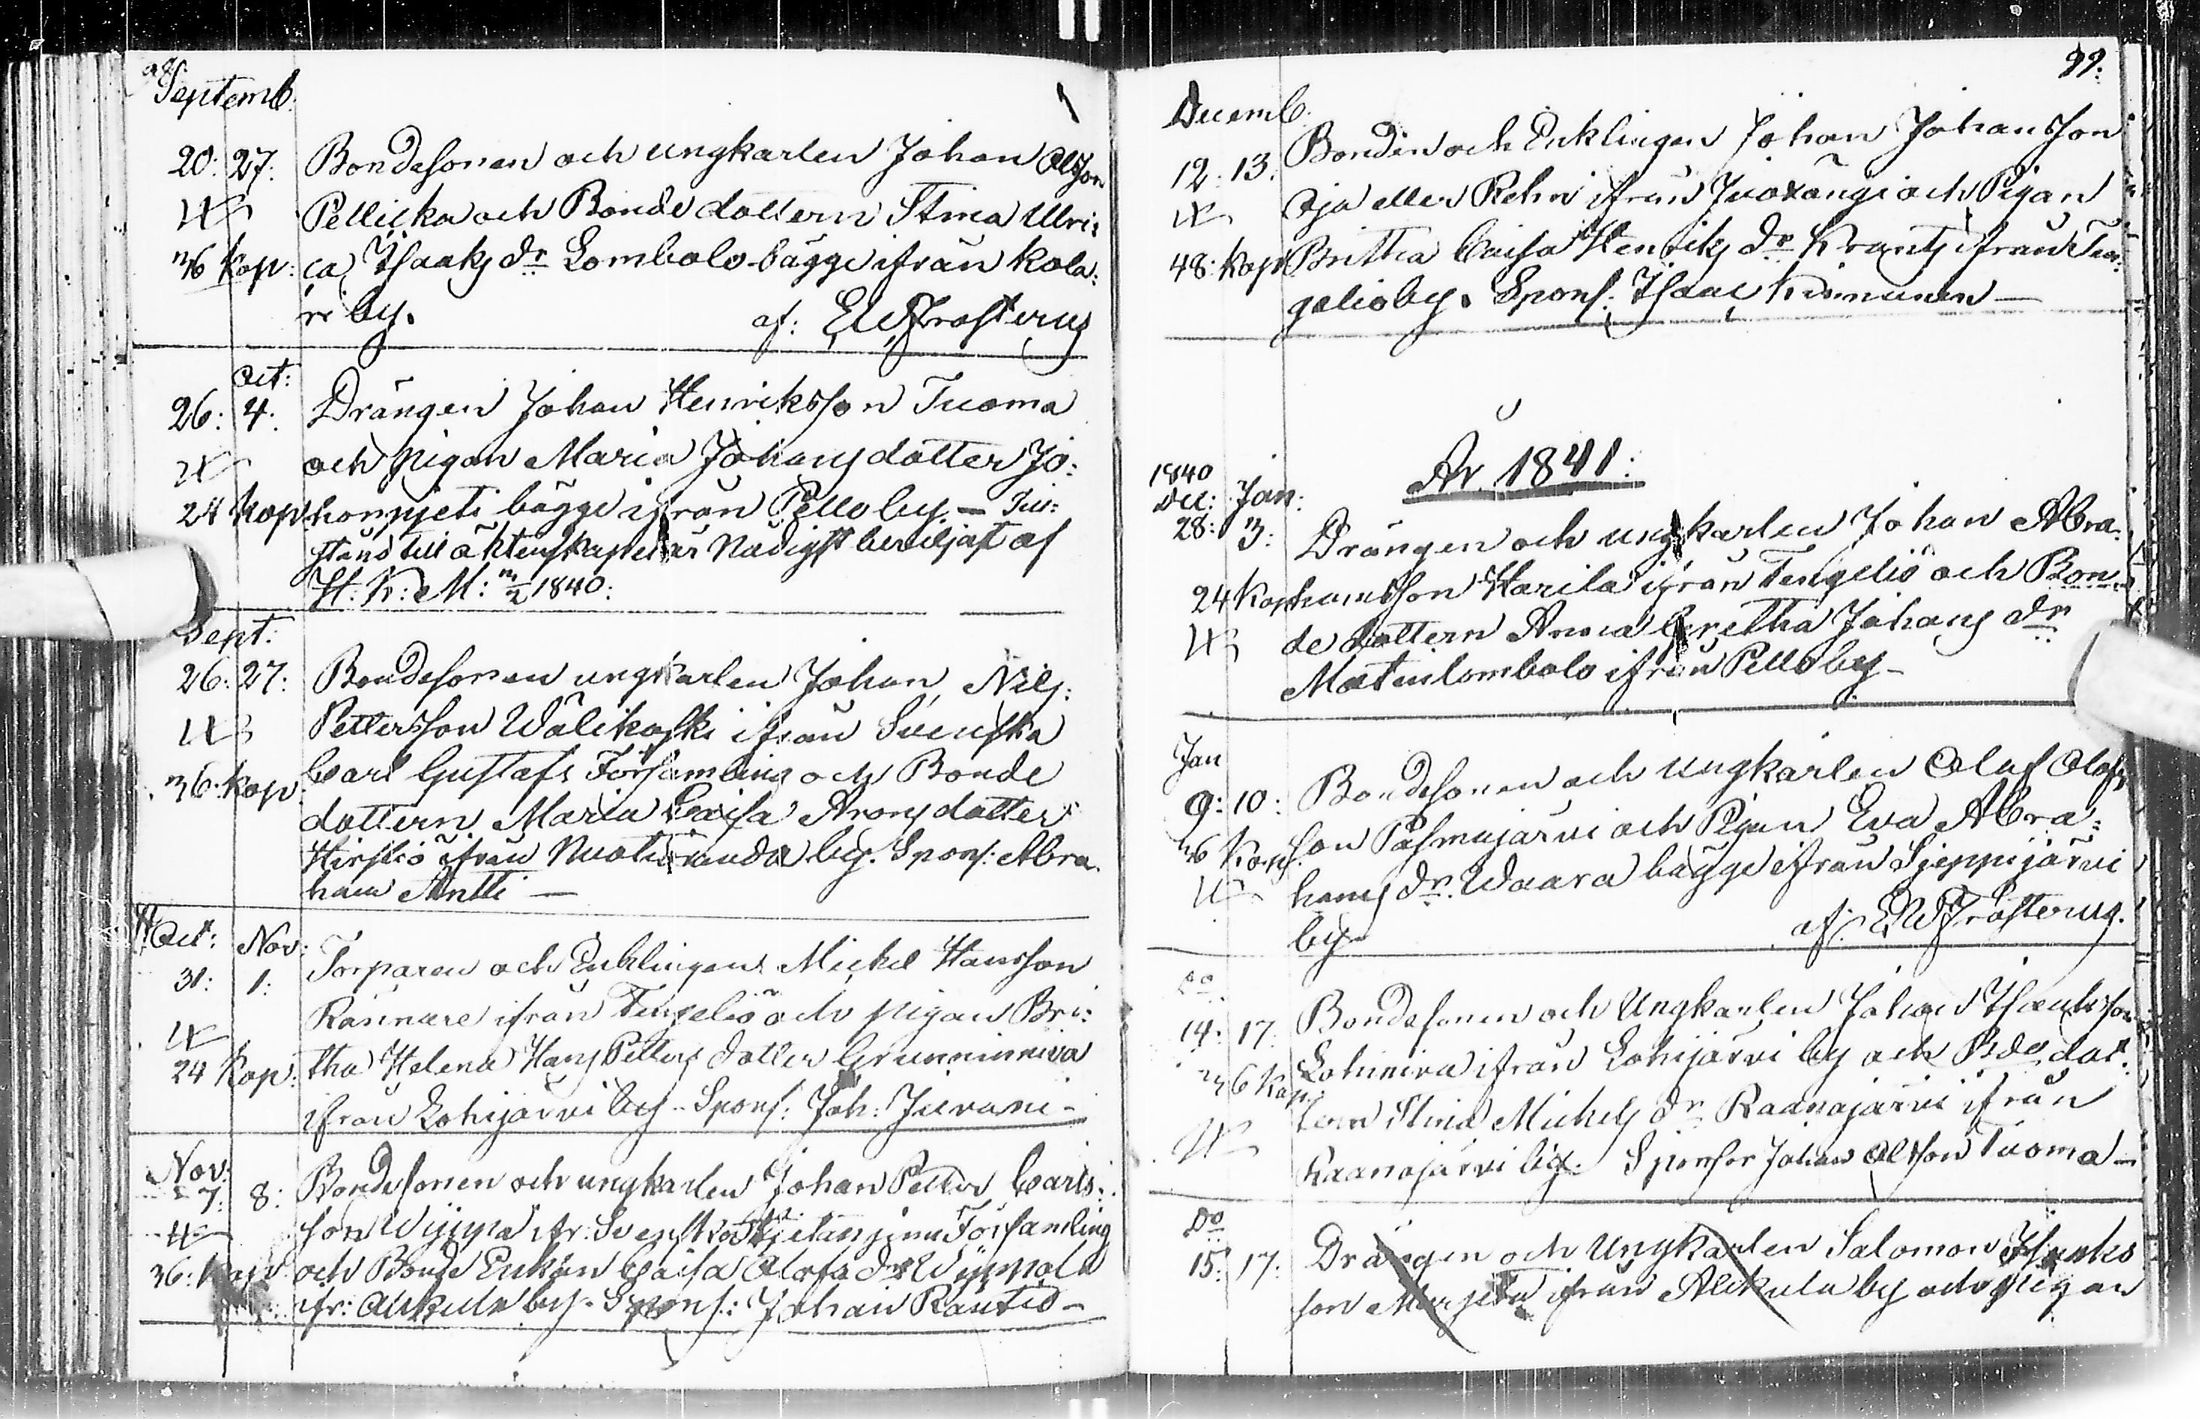 98.
Septemb.
20: 27: Bondesonen och ungkarlen Johan Olsson
Pellicka och Bonde dottern Stina Ulri:
36 Kop: ca Isaaks dr Lombolo bägge ifrån Kola:
ri by. af: EWFrosterus
Oct:
26: 4: Drängen Johan Henriksson Tuoma
och pigan Maria Johans dotter Jo:
24 Kop honpjeti bägge ifrån Pello by —
stånd till äktenskapet är Nådigst beviljat af
H: K: M: 1840:
Sept:
26: 27: Bondesonen ungkarlen Johan Nils:
Pettersson Wälikoski ifrån Svenska
36 Kop Carl Gustafs Församling och Bonde
dottern Maria Caisa Arons dotter
Hirstiö ifrån Nuotiranda by. Spons: Abra
ham Antti —
Oct: Nov:
31: 1: Torparen och Enklingen Michel Hansson
Kännare ifrån Tengeliö och pigan Bri:
24 Kop: tha Helena Hans Petters dotter Grunninniva
ifrån Lohijärvi by - Spons: Joh: Juvani -
Nov:
7: 8: Bondesonen och ungkarlen Johan Petter Carls:
son Wyppa ifr: Svenska Hjetanjemi Församling
36: Kop och Bonde Enkan Caisa Olofs dr Wyppola
ifr: Alkula by. Spons: Johan Rautio -
99:
Decemb.
12: 13: Bonden och Enklingen Johan Johansson
Oja eller Rehn ifrån Juoxängi och Pigan
48: Kop Britta Caisa Henriks dr Krants ifrån Ten:
geliö by. Spons: Isaac Kinnunen —
År 1841:
1840
Dec: Jan:
28: 3: Drängen och ungkarlen Johan Abra:
24 Kop hamsson Harila ifrån Tengeliö och Bon
de dottern Anna Gretha Johans dr
Matinlombolo ifrån Pello by -
Jan
9: 10: Bondesonen och ungkarlen Olof Olofs
36 Kop. son Pasmajärvi och Pigan Eva Abra:
hams dr. Waara bägge ifrån Sieppijärvi
by - af: EWFrosterus.
Do
14: 17: Bondesonen och Ungkarlen Johan Isaksson
36 Kop Lohiniva ifrån Lohijärvi by och Bde dot:
tern Stina Michels dr Raanojärvi ifrån
Raanojärvi by. Sponsor Johan Olsson Tuoma —
Do
15: 17: Drängen och Ungkarlen Salomon Isaks
son Marjeta ifrån Alkula by och pigan